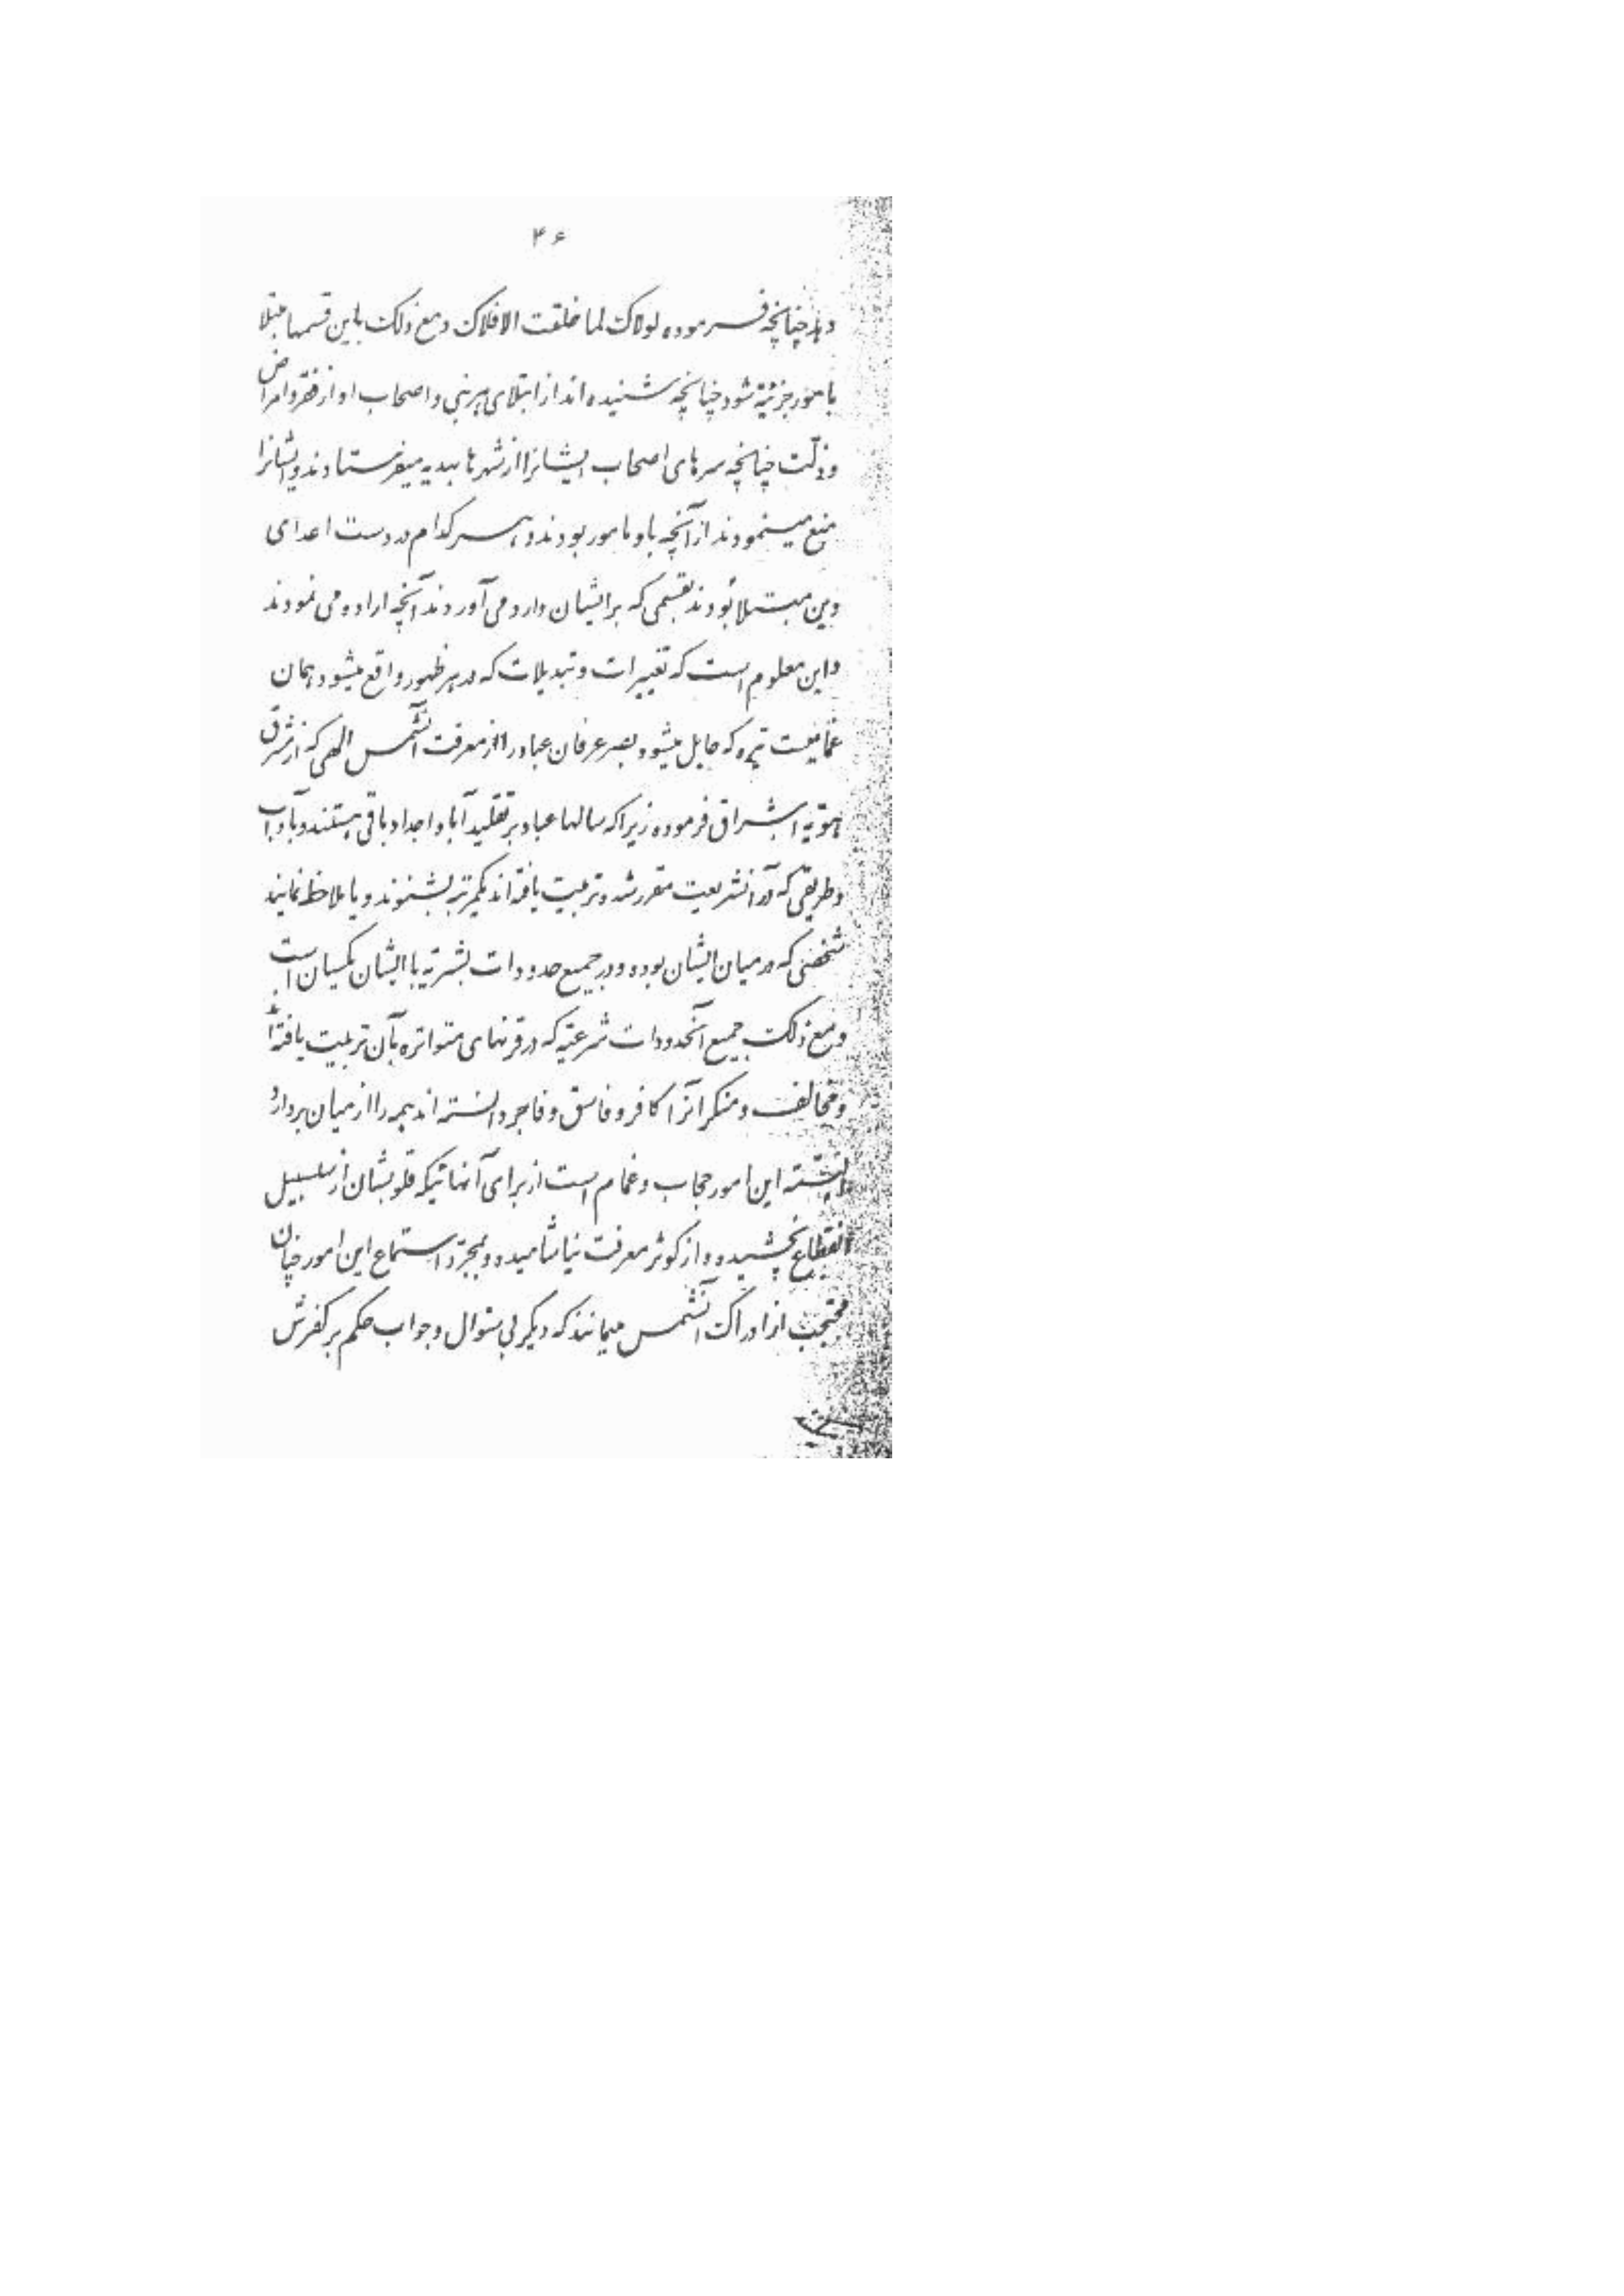 ۴۶
دهد چنانچه فرموده لولاک لما خلقت الافلاک و مع ذلک باین قسمها مبتلا
بامور جزئیّه شود چنانچه شنیده‌اند از ابتلای هر نبی و اصحاب او از فقر و امراض
و ذلّت چنانچه سرهای اصحاب ایشانرا از شهرها بهدیه میفرستادند و ایشانرا
منع مینمودند از آنچه باو مامور بودند و هر کدام در دست اعدای
دین مبتلا بودند بقسمی که بر ایشان وارد می‌آوردند آنچه اراده می نمودند
و این معلوم است که تغییرات و تبدیلات که در هر ظهور واقع میشود همان
غمامیست تیره که حایل میشود بصر عرفان عباد را از معرفت آنشمس الهی که از مشرق
هویّه اشراق فرموده زیرا که سالها عباد بر تقلید آبا و اجداد باقی هستند و بآداب
و طریقی که در آنشریعت مقرر شد و تربیت یافته‌اند یکمرتبه بشنوند و یا ملاحظه نمایند
شخصی که در میان ایشان بوده و در جمیع حدودات بشریّه با ایشان یکسان است
و مع ذلک جمیع آنحدودات شرعیّه که در قرنهای متواتره بآن تربیت یافته‌اند
و مخالف و منکر آنرا کافر و فاسق و فاجر دانسته‌اند همه را از میان بردارد
البتّه این امور حجاب و غمام است از برای آنهائیکه قلوبشان از سلسبیل
انقطاع نچشیده و از کوثر معرفت نیاشامیده و بمجرّد استماع این امور چنان
محتجب از ادراک آنشمس میمانند که دیگر بی سئوال و جواب حکم بر کفرش